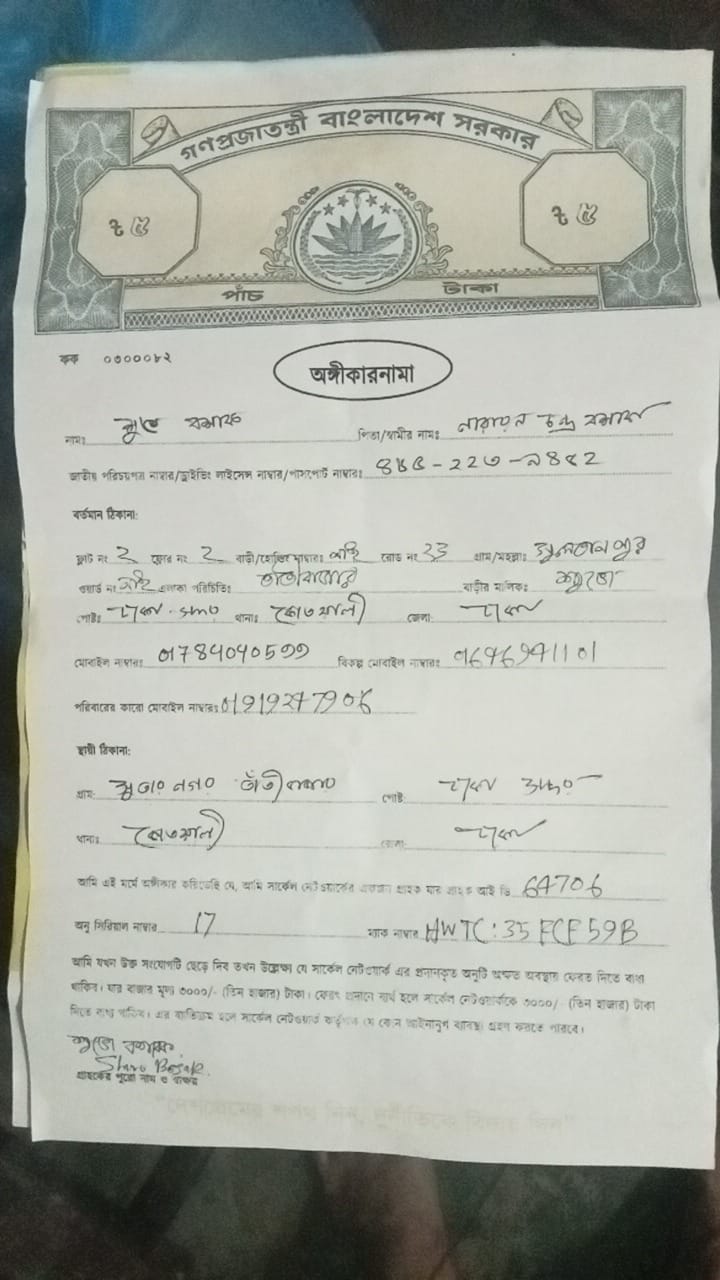 গণপ্রজাতন্ত্রী বাংলাদেশ সরকার
৳ ৫ ৳ ৫
পাঁচ টাকা
কক ০৩০০০৮২
অঙ্গীকারনামা
নামঃ বসাক পিতা/স্বামীর নামঃ নারায়ন চন্দ্র বসাক
জাতীয় পরিচয়পত্র নাম্বার/ড্রাইভিং লাইসেন্স নাম্বার/পাসপোর্ট নাম্বারঃ
বর্তমান ঠিকানা:
ফ্লাট নং 2 ফ্লোর নং 2 বাড়ী/হোল্ডিং নাম্বারঃ নাই রোড নং 23 গ্রাম/মহল্লাঃ
ওয়ার্ড নং নাই এলাকা পরিচিতিঃ তাঁতীবাজার বাড়ীর মালিকঃ
পোষ্টঃ ঢাকা সদর থানাঃ কোতয়ালী জেলা: ঢাকা
মোবাইল নাম্বারঃ 01784040599 বিকল্প মোবাইল নাম্বারঃ
পরিবারের কারো মোবাইল নাম্বারঃ 01919247906
স্থায়ী ঠিকানা:
গ্রাম: তাঁতীবাজার পোষ্ট: ঢাকা সদর
থানাঃ কোতয়ালী জেলা: ঢাকা
আমি এই মর্মে অঙ্গীকার করিতেছি যে, আমি সার্কেল নেটওয়ার্কের একজন গ্রাহক যার গ্রাহক আই ডি 64706
অনু সিরিয়াল নাম্বার 17 ম্যাক নাম্বার HWTC:35FCF59B
আমি যখন উক্ত সংযোগটি ছেড়ে দিব তখন উল্লেক্ষ্য যে সার্কেল নেটওয়ার্ক এর প্রদানকৃত অনুটি অক্ষত অবস্থায় ফেরত দিতে বাধ্য
থাকিব। যার বাজার মূল্য ৩০০০/- (তিন হাজার) টাকা। ফেরৎ প্রদানে ব্যর্থ হলে সার্কেল নেটওয়ার্ককে ৩০০০/- (তিন হাজার) টাকা
দিতে বাধ্য থাকিব। এর ব্যতিক্রম হলে সার্কেল নেটওয়ার্ক কর্তৃপক্ষ যে কোন আইনানুগ ব্যবস্থা গ্রহণ করতে পারবে।
বসাক
গ্রাহকের পুরো নাম ও স্বাক্ষর
"দেশপ্রেমের শপথ নিন, দুর্নীতিকে বিদায় দিন"